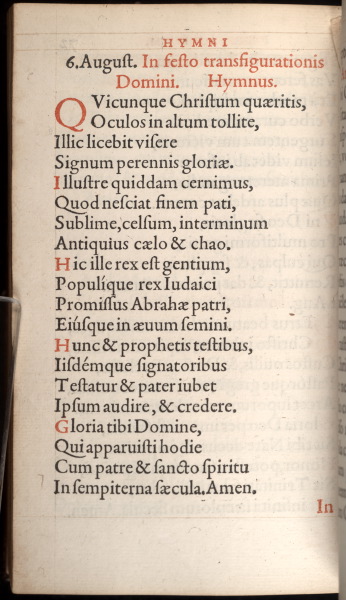 HYMNI
6. August. In festo transfigurationis
Domini. Hymnus.
QVicunque Christum quæritis,
Oculos in altum tollite,
Illic licebit visere
Signum perennis gloriæ.
Illustre quiddam cernimus,
Quod nesciat finem pati,
Sublime, celsum, interminum
Antiquius cælo & chao.
Hic ille rex est gentium,
Populíque rex Iudaici
Promissus Abrahæ patri,
Eiúsque in æuum semini.
Hunc & prophetis testibus,
Iisdémque signatoribus
Testatur & pater iubet
Ipsum audire, & credere.
Gloria tibi Domine,
Qui apparuisti hodie
Cum patre & sancto spiritu
In sempiterna sæcula. Amen.
In